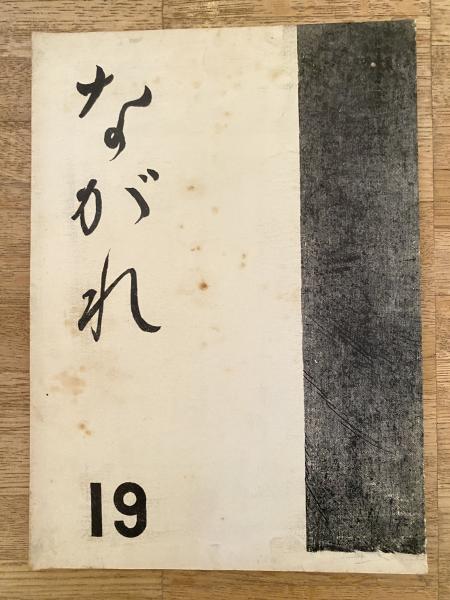 ながれ
19